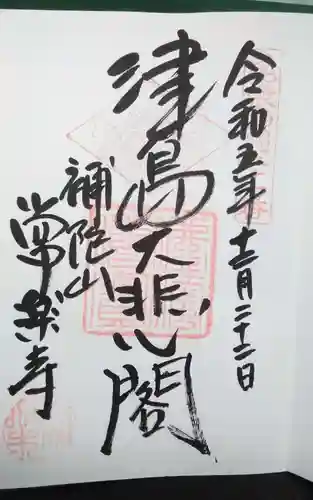 令和五年十二月二十二日
津島大悲閣
補陀山
常楽寺